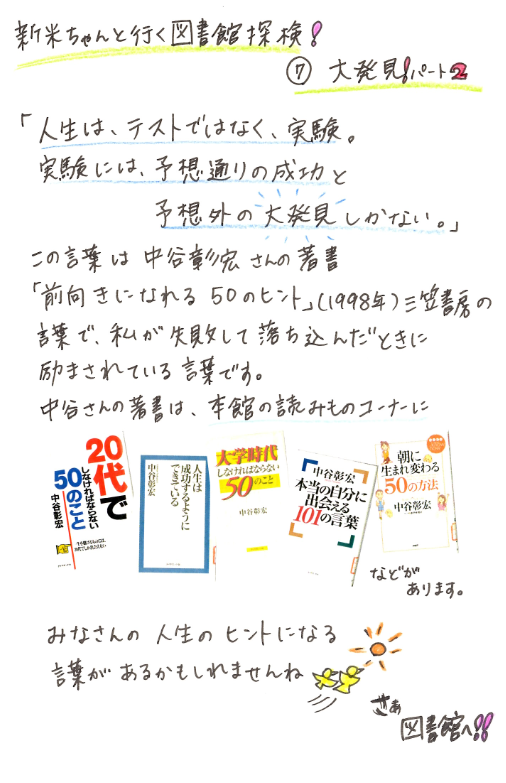 新米ちゃんと行く図書館探検!
⑦ 大発見!パート2
「人生は、テストではなく、実験。
実験には、予想通りの成功と
予想外の大発見しかない。」
この言葉は中谷彰宏さんの著書
「前向きになれる50のヒント」(1998年)三笠書房の
言葉で、私が失敗して落ち込んだときに
励まされている言葉です。
中谷さんの著書は、本館の読みものコーナーに
20代で
しなければならない
50のこと
中谷彰宏
人生は
成功するように
できている
中谷彰宏
大学時代
しなければならない
50のこと
中谷彰宏
中谷彰宏
本当の自分に
出会える
101の言葉
朝に
生まれ変わる
50の方法
中谷彰宏
などが
あります。
みなさんの人生のヒントになる
言葉があるかもしれませんね
さぁ
図書館へ!!